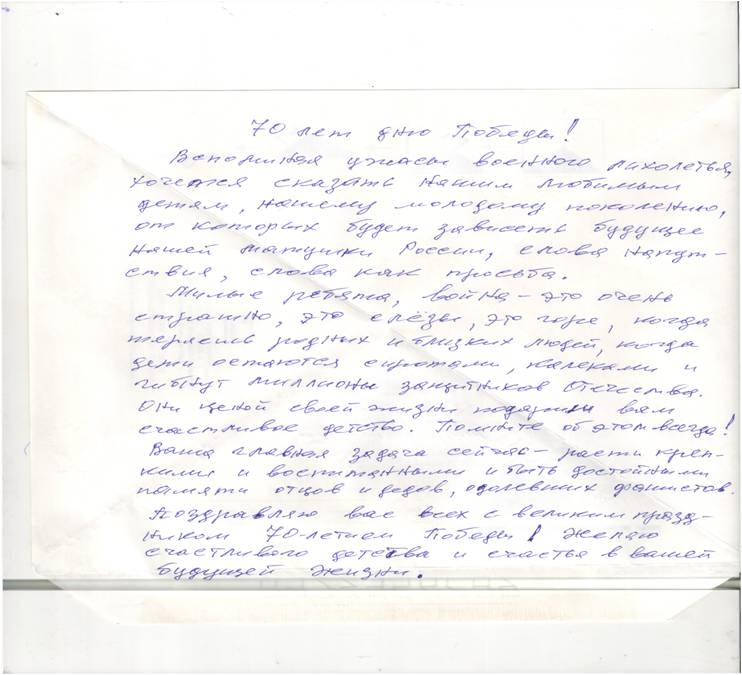 70 лет дню Победы!
Вспоминая ужасы военного лихолетья,
хочется сказать нашим любимым
детям, нашему молодому поколению,
от которых будет зависеть будущее
нашей матушки России, слова напут-
ствия, слова как просьба.
Милые ребята, война - это очень
страшно, это слёзы, это горе, когда
теряешь родных и близких людей, когда
дети остаются сиротами, калеками и
гибнут миллионы защитников Отечества.
Они ценой своей жизни подарили вам
счастливое детство. Помните об этом всегда!
Ваша главная задача сейчас - расти креп-
кими и воспитанными и быть достойными
памяти отцов и дедов, одолевших фашистов.
Поздравляю вас всех с великим празд-
ником 70-летием Победы! Желаю
счастливого детства и счастья в вашей
будущей жизни.